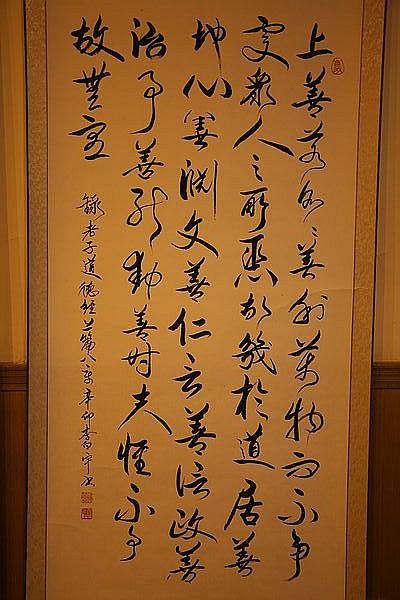 上善若水〻善利萬物而不争
處衆人之所惡故幾於道居善
地心善渊与善仁言善信政善
治事善能動善时夫惟不争
故無尤
錄老子道德經上篇八章辛卯李书